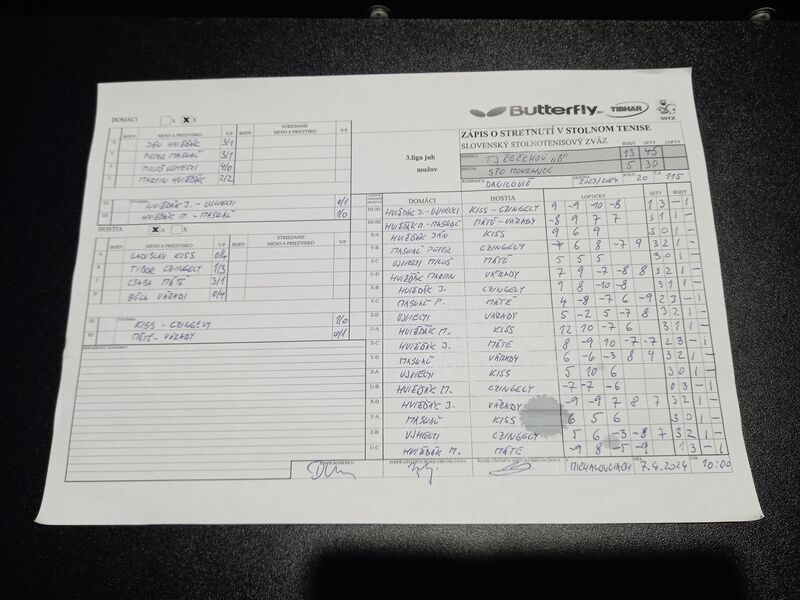 Butterfly TIBHAR SSTZ
DOMÁCI A X X
ZÁPIS O STRETNUTÍ V STOLNOM TENISE
SLOVENSKÝ STOLNOTENISOVÝ ZVÄZ
BODY SETY LOPTY
3.liga juh
mužov
DOMÁCI TJ ČEČEHOV „B“ 13 45
HOSTIA STO MOKRANCE 5 30
DANILOVÁ 2023/2024 20 115
STRIEDANIE
BODY MENO A PRIEZVISKO V/P MENO A PRIEZVISKO V/P
JÁN HVIŽĎÁK 3/1
PETER MASKAĽ 3/1
MILOŠ UJHELYI 4/0
MARTIN HVIŽĎÁK 2/2
HVIŽĎÁK J. - UJHELYI 0/1
HVIŽĎÁK M. - MASKAĽ 1/0
HOSTIA X X Y
STRIEDANIE
BODY MENO A PRIEZVISKO V/P BODY MENO A PRIEZVISKO V/P
LADISLAV KISS 0/4
TIBOR CZINGELY 1/3
CSABA MÁTÉ 3/1
BÉLA VÁRADY 0/4
KISS - CZINGELY 1/0
MÁTÉ - VÁRADY 0/1
DOMÁCI HOSTIA LOPTIČKY SETY BODY
D1-H1 HVIŽĎÁK J. - UJHELYI KISS - CZINGELY 9 -9 -10 -8 1 3 - 1
D2-H2 HVIŽĎÁK M. - MASKAĽ MÁTÉ - VÁRADY -8 9 7 7 3 1 1 -
X-A HVIŽĎÁK JÁN KISS 9 6 9 3 0 1 -
Y-B MASKAĽ PETER CZINGELY -7 6 8 -7 9 3 2 1 -
Z-C UJHELYI MILOŠ MÁTÉ 5 5 5 3 0 1 -
U-D HVIŽĎÁK MARTIN VÁRADY 7 9 -7 -8 8 3 2 1 -
X-B HVIŽĎÁK J. CZINGELY 9 8 -10 -8 3 1 1 -
Y-C MASKAĽ P. MÁTÉ 4 -8 -7 6 -9 2 3 - 1
Z-D UJHELYI VÁRADY 5 -2 5 -7 8 3 2 1 -
U-A HVIŽĎÁK M. KISS 12 10 -7 6 3 1 1 -
X-C HVIŽĎÁK J. MÁTÉ 8 -9 10 -7 -7 2 3 - 1
Y-D MASKAĽ VÁRADY 6 -6 -3 8 9 3 2 1 -
Z-A UJHELYI KISS 5 10 6 3 0 1 -
U-B HVIŽĎÁK M. CZINGELY -7 -7 -6 0 3 - 1
X-D HVIŽĎÁK J. VÁRADY -9 -9 7 8 7 3 2 1 -
Y-A MASKAĽ KISS 6 5 6 3 0 1 -
Z-B UJHELYI CZINGELY 5 6 -3 -8 7 3 2 1 -
U-C HVIŽĎÁK M. MÁTÉ -9 8 -5 -9 1 3 - 1
MICHALOVCIACH 7.4.2024 10:00